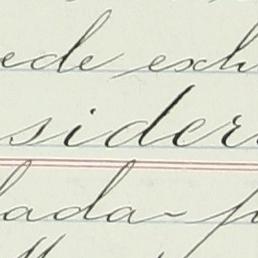 ede exh
sider
lada-p